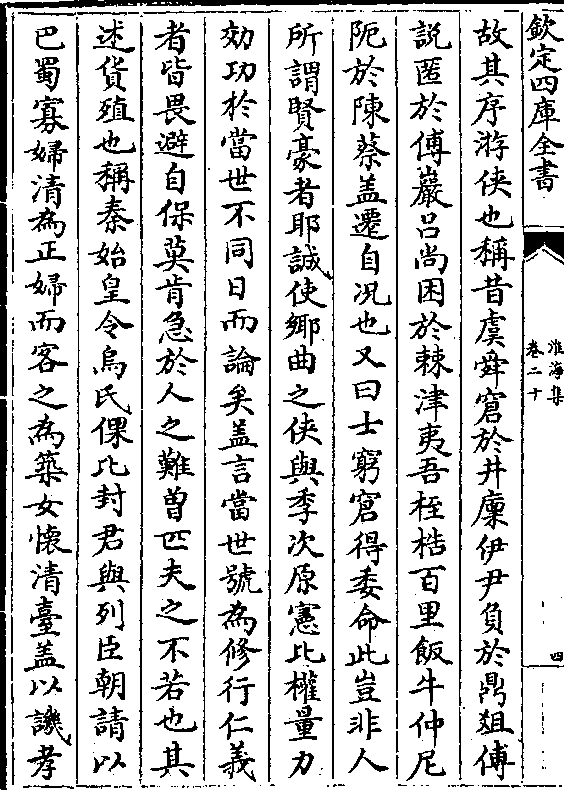 欽定四庫全書
淮海集
卷二十
四
故其序游俠也稱昔虞舜窘於井廩伊尹負於鼎俎傅
說匿於傅巖呂尚困於棘津夷吾桎梏百里飯牛仲尼
阨於陳蔡盖遷自况也又曰士窮窘得委命此豈非人
所謂賢豪者耶誠使鄉曲之俠與季次原憲比權量力
効功於當世不同日而論矣盖言當世號為修行仁義
者皆畏避自保莫肯急於人之難曽匹夫之不若也其
述貨殖也稱秦始皇令烏氏倮比封君與列臣朝請以
巴蜀寡婦清為正婦而客之為築女懷清臺盖以譏孝